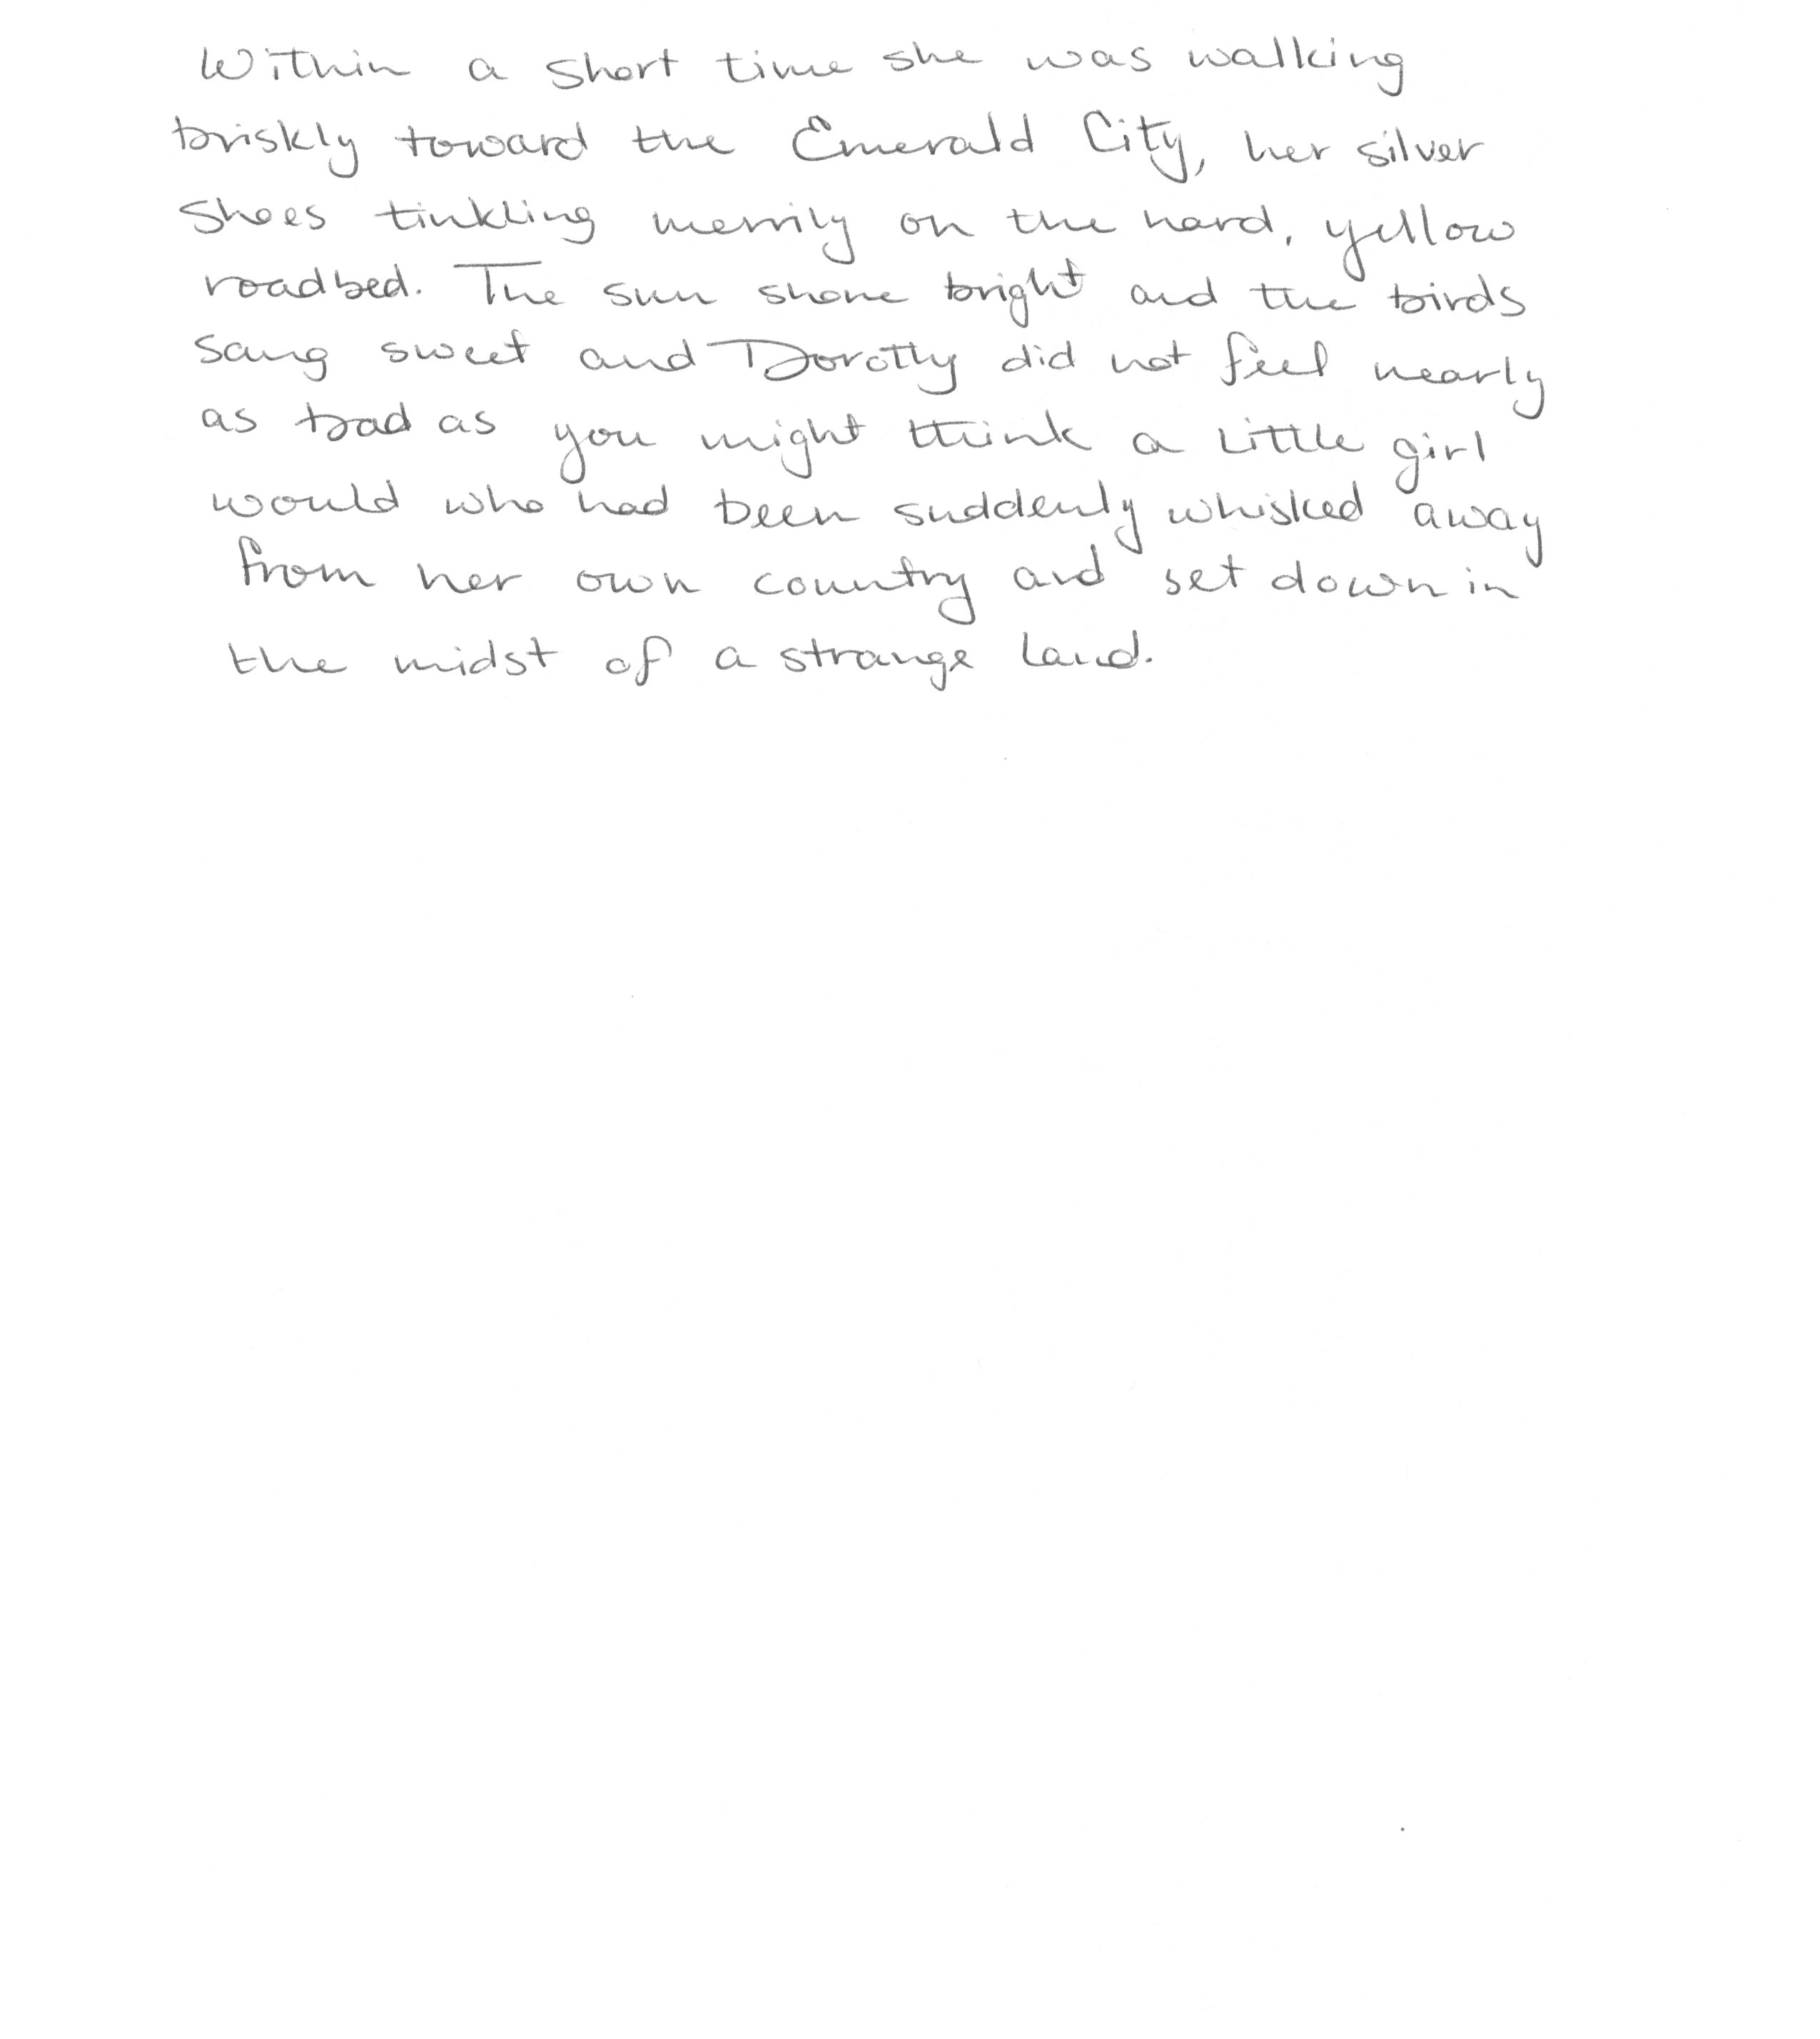 Within a short time she was walking
briskly toward the Emerald City, her silver
shoes tinkling merrily on the hard, yellow
roadbed. The sun shone bright and the birds
sang sweet and Dorothy did not feel nearly
as bad as you might think a little girl
would who had been suddenly whisked away
from her own country and set down in
the midst of a strange land.